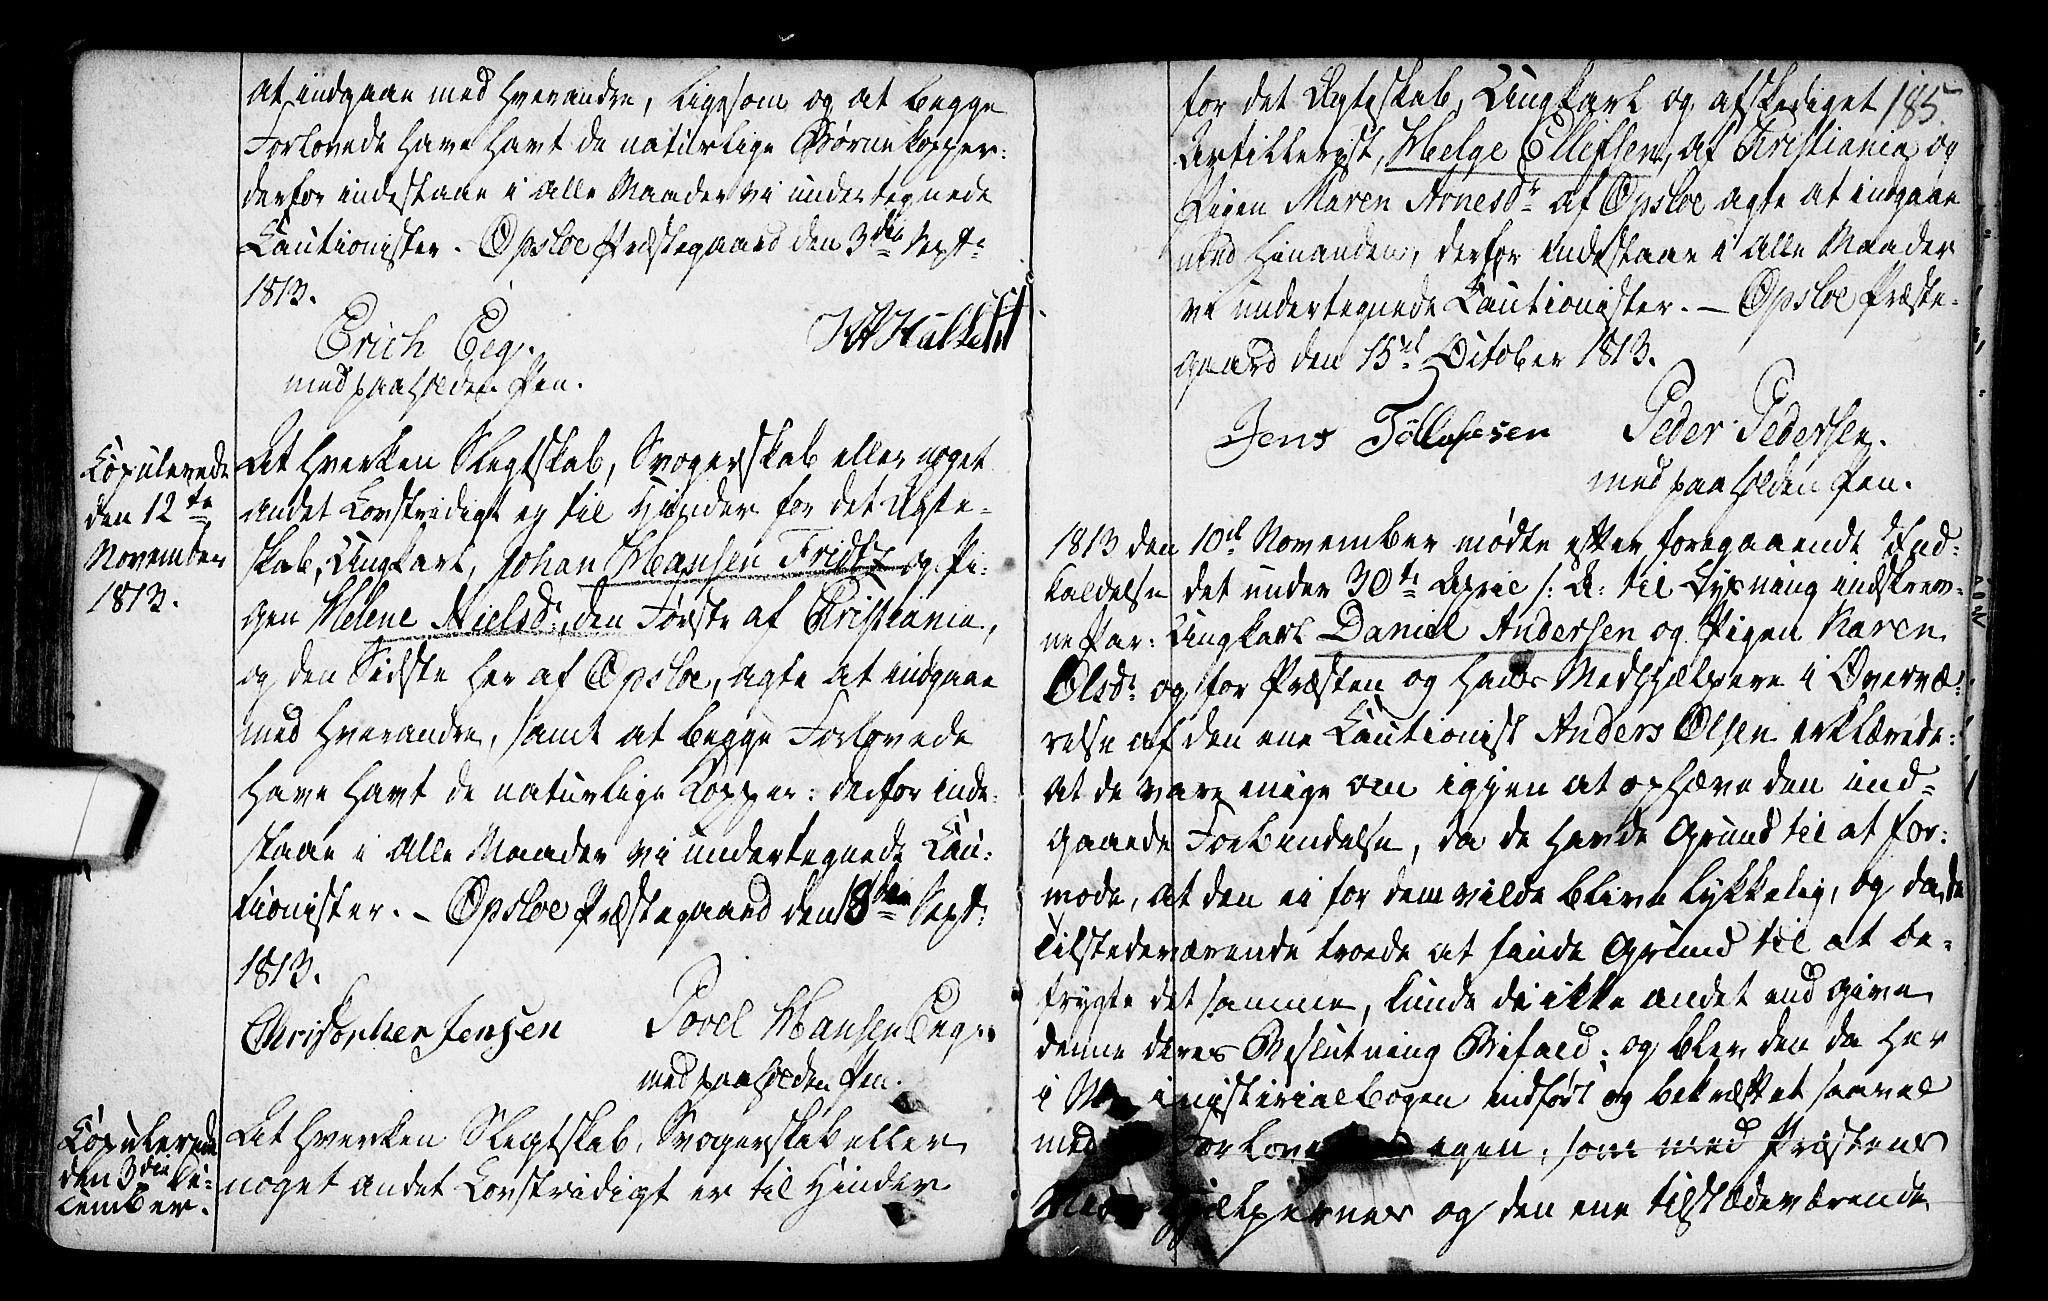 at indgaae med hverandre, ligesom og at begge
Forlovede have havt de naturlige Børnekopper:
derfor indestaae i alle Maader vi undertegnede
Cautionister. Opsloe Præstegaard den 3die Sept:
1813.
Erich Eeg.
med paaholden Pen.
Copulerede
den 12te
November
1813.
At hverken Slegtskab, Svogerskab eller noget
andet Lovstridigt er til Hinder for det Ægte-
skab, Ungkarl, Johan Hansen Fridtz og Pi-
gen Helene Nielsdr, den Første af Christiania,
og den Sidste her af Opsloe, agte at indgaae
med hverandre, samt at begge Forlovede
have havt de naturlige Kopper: derfor inde-
staae i alle Maader vi undertegnede Cau-
tionister. – Opsloe Præstegaard den 18den Sept:
1813.
Christopher Jensen Povel Hansen Eeg
med paaholden Pen.
Copulerede
den 3die De-
cember.
At hverken Slegtskab, Svogerskab eller
noget andet Lovstridigt er til Hinder
185.
for det Ægteskab, Ungkarl og afskediget
Artillerist, Helge Ellefsen, af Christiania og
Pigen Maren Arnesdr af Opsloe agte at indgaae
med hinanden, derfor indestaae i alle Maader
vi undertegnede Cautionister. – Opsloe Præste-
gaard den 15de October 1813.
Jens Tollefsen Peder Pedersen.
med paaholden Pen.
1813 den 10de November mødte efter foregaaende Ind-
kaldelse det under 30te April s: A: til Lysning indskrev-
ne Par: Ungkarl Daniel Andersen og Pigen Karen
Olsdr og for Præsten og hans Medhjelpere i Overvæ-
relse af den ene Cautionist Anders Olsen erklærede:
at de vare enige om igjen at ophæve den ind-
gaaede Forbindelse, da de havde Grund til at for-
mode, at den ei for dem vilde blive lykkelig, og da de
Tilstedeværende troede at finde Grund til at be-
frygte det samme, kunde de ikke andet end give
denne deres Beslutning Bifald; og blev den da her
i Ministerialbogen indført og bekræftet saavel
med egen, som med Præstens
Medhjelpernes og den ene tilstædeværende